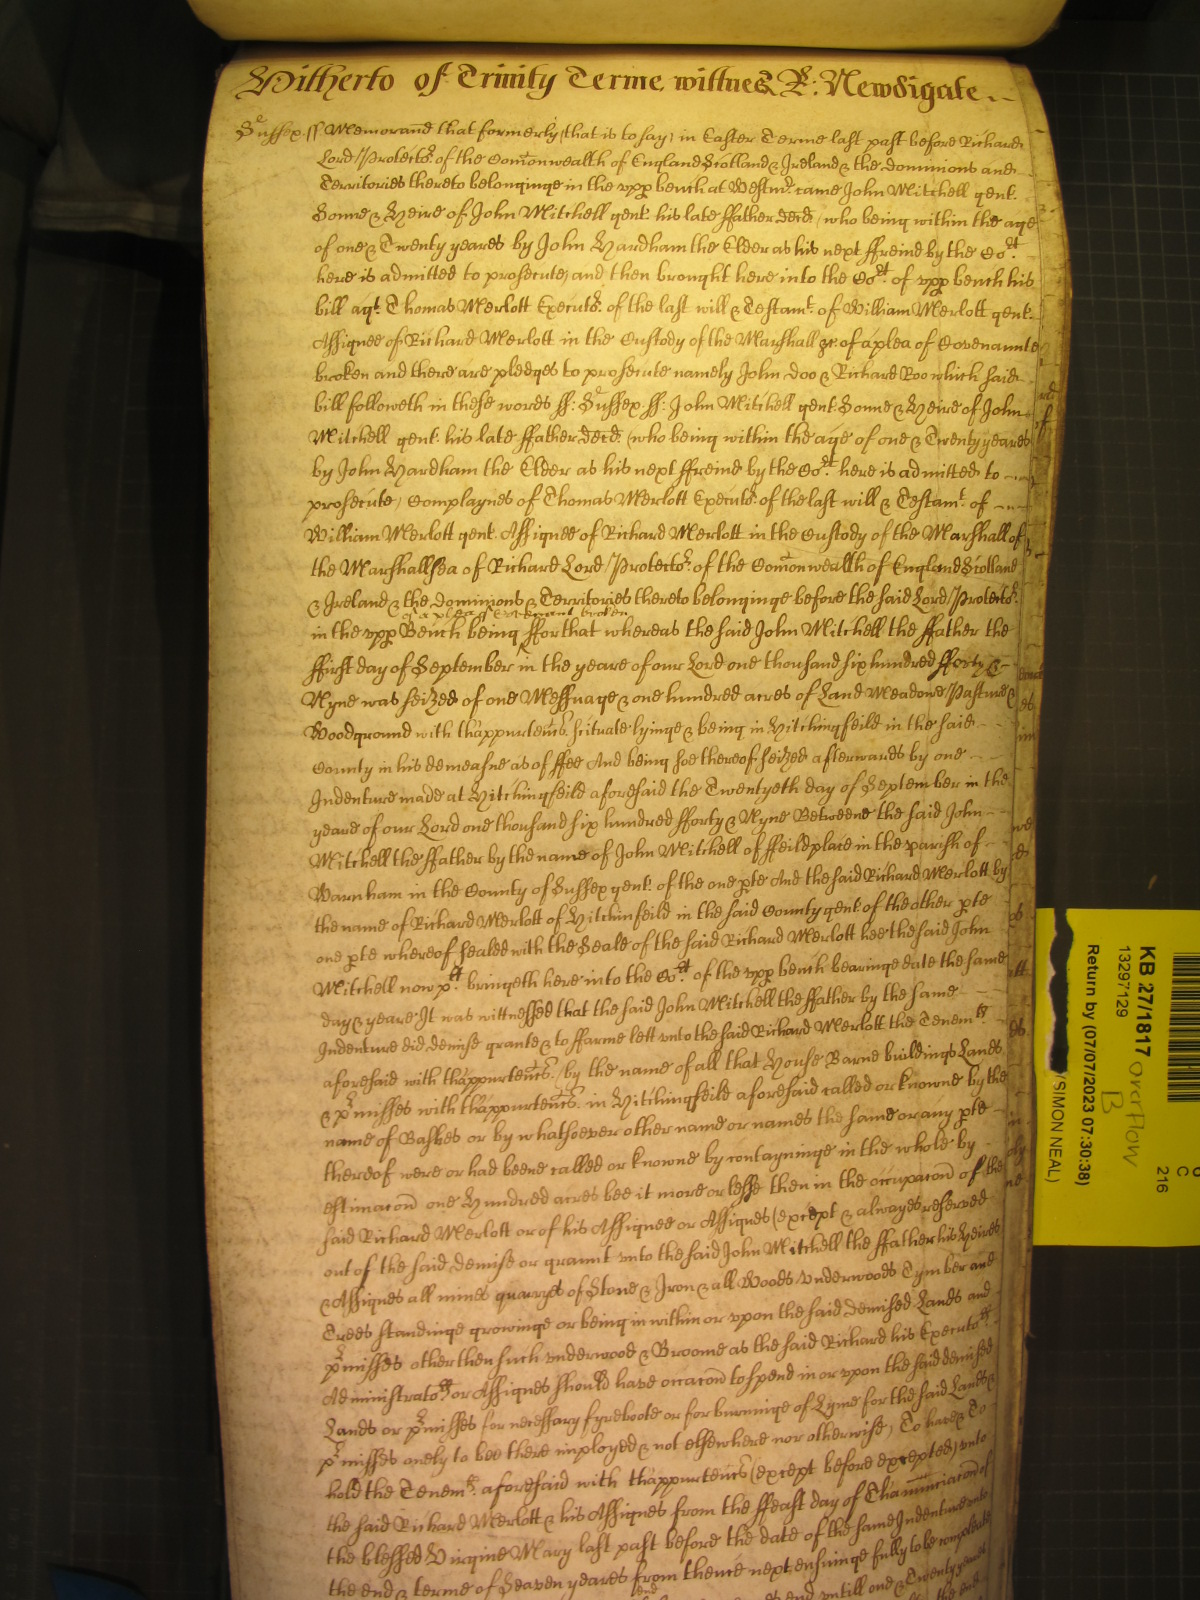 Hitherto of Trinity Terme, wittnes R: Newdigate
Sussex ss Memorand that formerly (that is to say) in Easter Terme last past before Richard
Lord Protector of the Comonwealth of England Scotland & Ireland & the dominions and
Territories thereto belonginge in the upp bench at Westmr came John Mitchell gent.
Sonne & Heire of John Mitchell gent. his late ffather decd (who being within the age
of one & Twenty yeares by John Hardham the Elder as his next ffreind by the Cort
here is admitted to prosecute) and then brought here into the Cort of upp bench his
bill agt. Thomas Merlott Executor of the last will & Testamt. of William Merlott gent.
Assignee of Richard Merlott in the Custody of the Marshall &c. of a plea of Covenannte
broken and there are pledges to prosecute namely John Doo & Richard Roo which said
bill followeth in these words ss: Sussex ss: John Mitchell gent. Sonne & Heire of John
Mitchell gent. his late ffather decd. (who being within the age of one & Twenty yeares
by John Hardham the Elder as his next ffreind by the Cort here is admitted to
prosecute) Complaynes of Thomas Merlott Executor of the last will & Testamt. of
William Merlott gent. Assignee of Richard Merlott in the Custody of the Marshall of
the Marshallsea of Richard Lord Protector of the Comonwealth of England Scotland
& Ireland & the dominions & Territories thereto belonginge before the said Lord Protector
of a plea of Covenant broken
in the upp Bench being ffor that whereas the said John Mitchell the ffather the
ffirst day of September in the yeare of our Lord one thousand six hundred fforty &
Nyne was seized of one Messuage & one hundred acres of Land Meadowe Pasture &
Woodground with thappurtencs scituate lyinge & being in Hitchingfeild in the said
County in his demeasne as of ffee And being soe thereof seized afterwards by one
Indenture made at Hitchingfeild aforesaid the Twentyeth day of September in the
yeare of our Lord one thousand six hundred fforty & Nyne Betweene the said John
Mitchell the ffather by the name of John Mitchell of ffeildplace in the parish of
Warnham in the County of Sussex gent. of the one pte And the said Richard Merlott by
the name of Richard Merlott of Hitchinfeild in the said County gent. of the other pte
one pte whereof sealed with the Seale of the said Richard Merlott hee the said John
Mitchell now plt. bringeth here into the Cort of the upp bench bearinge date the same
day & yeare It was wittnessed that the said John Mitchell the ffather by the same
Indenture did demise grante & to ffarme lett unto the said Richard Merlott the Tenemts
aforesaid with thappurtencs. (by the name of all that House Barne buildings Lands
& pmisses with thappurtencs. in Hitchingfeild aforesaid called or knowne by the
name of Bashes or by whatsoever other name or names the same or any pte
thereof were or had beene called or knowne by contayninge in the whole by
estimacon one Hundred acres bee it more or lesse then in the occupacon of the
said Richard Merlott or of his Assignee or Assignes (except & alwayes reserved
out of the said demise or graunt unto the said John Mitchell the ffather his Heires
& Assignes all mines quarryes of Stone & Iron & all Woods Underwoods Tymber and
Trees standinge growinge or being in within or upon the said demised Lands and
pmisses other then such underwood & Broome as the said Richard his Executors
Administrators or Assignes should have occacon to spend in or upon the said demised
Lands or pmisses for necessary fyreboote or for burninge of Lyme for the said Lands &
pmisses onely to bee there imployed & not elsewhere nor otherwise) To have & To
hold the Tenemts. aforesaid with thappurtencs (except before excepted) unto
the said Richard Merlott & his Assignes from the ffeast day of Thannunciacon of
the blessed Virgine Mary last past before the date of the same Indenture unto
the end & terme of Seaven yeares from thence next ensuinge fully to be compleate
end untill one & Twenty yeares
the end
KB 27/1817 overflow
B
13297129
Return by (07/07/2023 07:30:38)
SIMON NEAL)
C
216